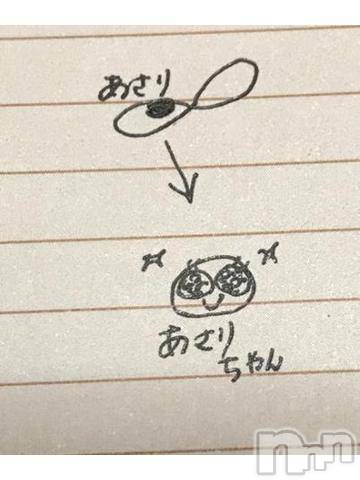 あさり
あさり
ちゃん
nnn